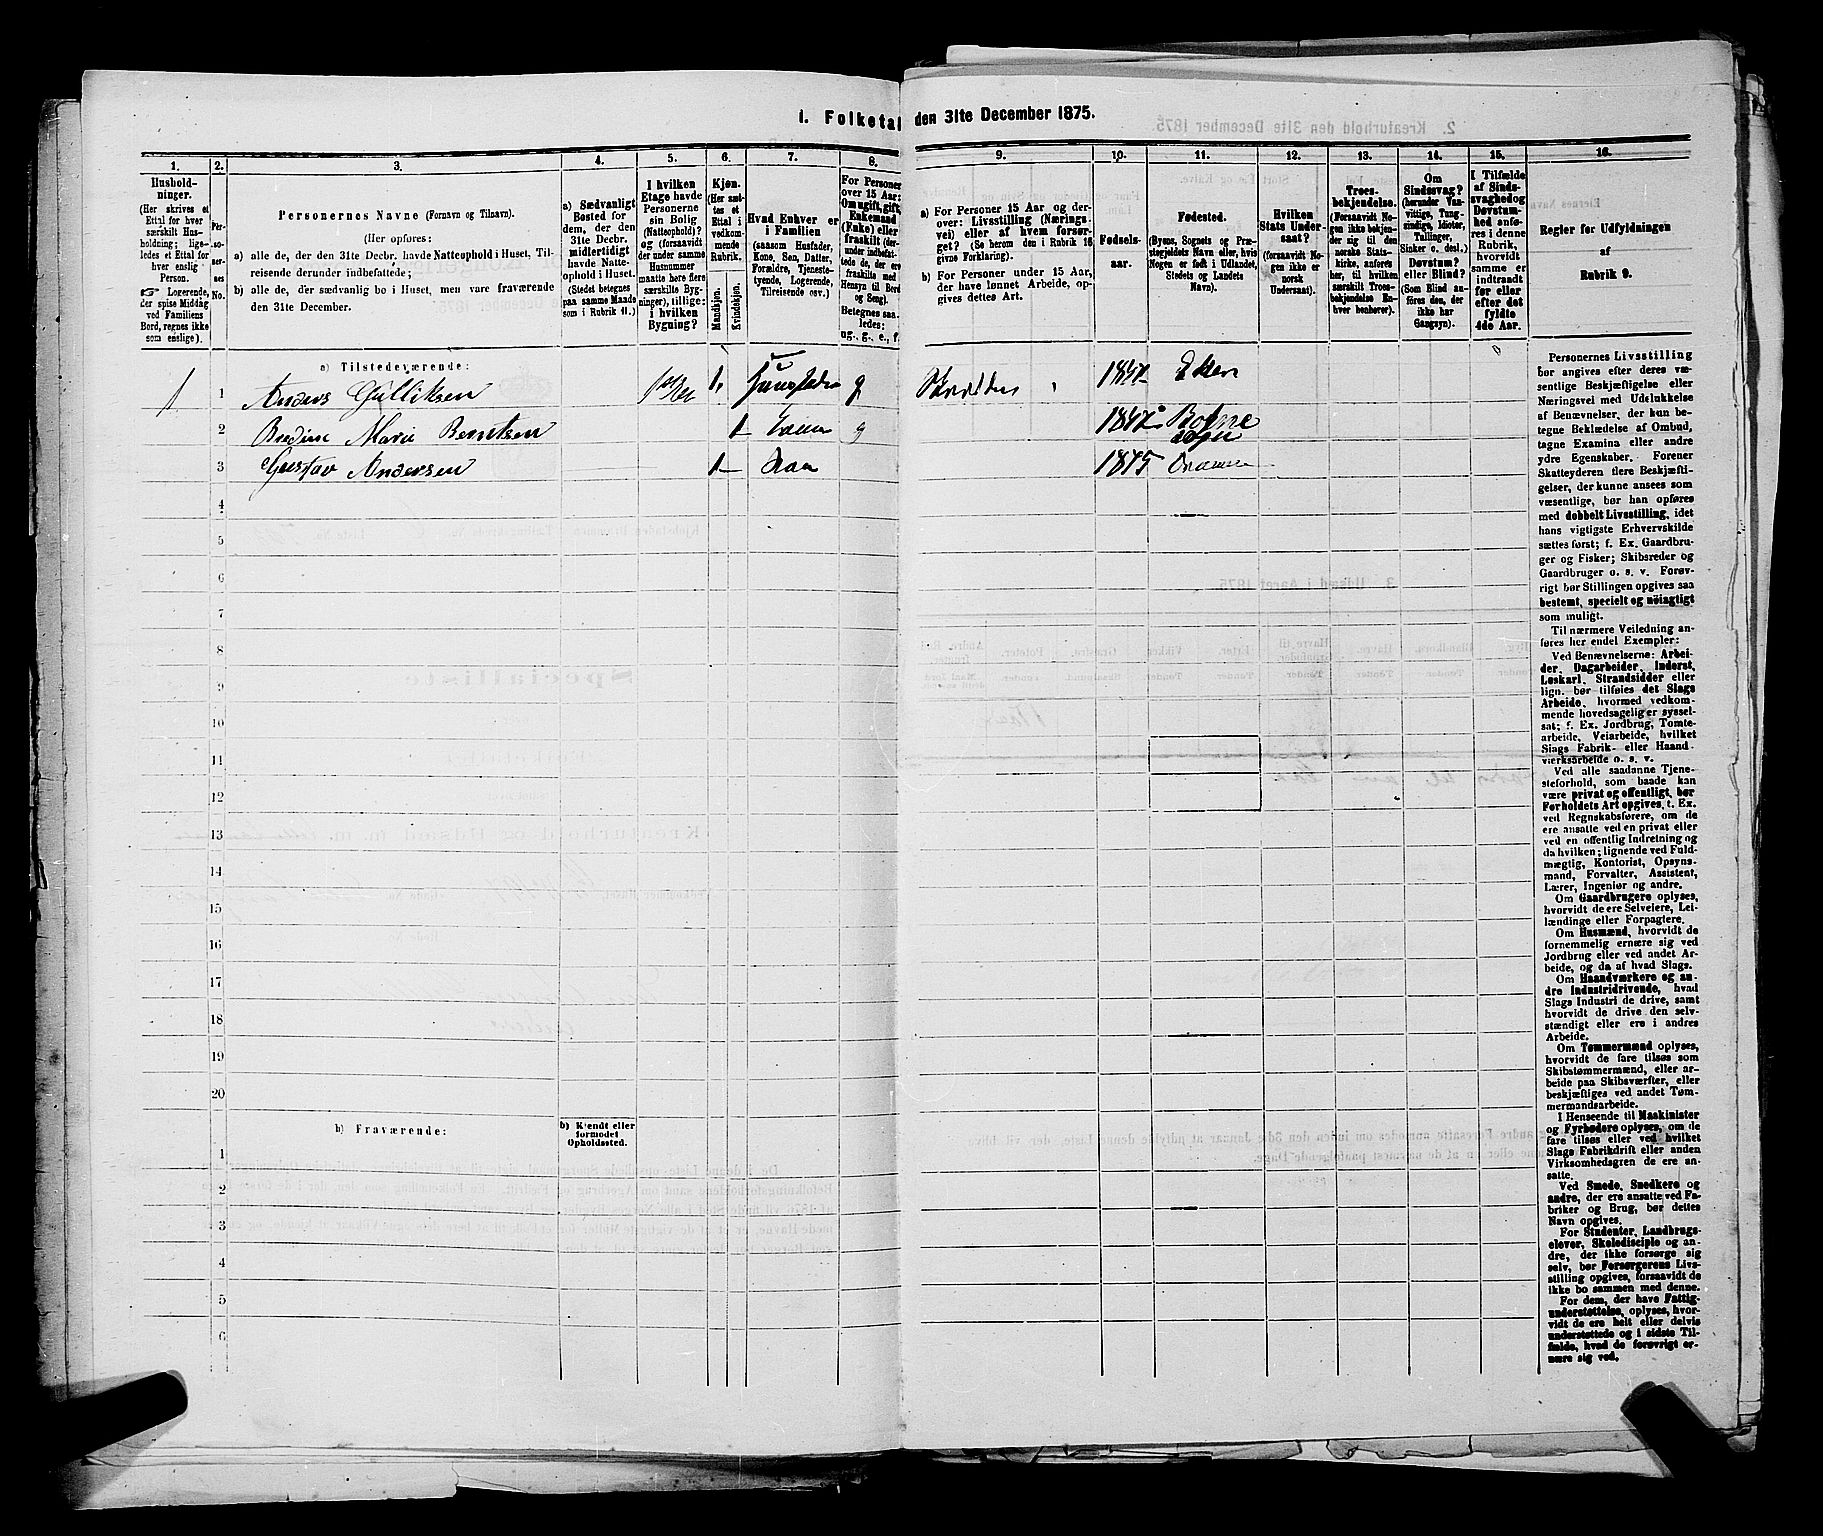 1. Folketal den 31te December 1875.
1.
Husholdninger.
(Her skrives et
Ettal for hver
særskilt Husholdning;
ligeledes et Ettal for
hver enslig
Person.
Logerende,
der spise Middag
ved Familiens
Bord, regnes ikke
som enslige).
2.
Personernes
No.
3.
Personernes Navne (Fornavn og Tilnavn).
(Her opføres:
a) alle de, der den 31te Decbr. havde Natteophold i Huset, Tilreisende
derunder indbefattede;
b) alle de, der sædvanlig bo i Huset, men vare fraværende
den 31te December.
4.
a) Sædvanligt
Bosted for
dem, der den
31te Decbr.
midlertidigt
havde Natteophold
i Huset.
(Stedet betegnes
paa samme Maade
som i Rubrik 11.)
5.
I hvilken
Etage havde
Personerne
sin Bolig
(Natteophold)?
og (forsaavidt
der under samme
Husnummer
maatte høre flere
særskilte Bygninger),
tillige:
i hvilken
Bygning?
6.
Kjøn.
(Her sættes
et
Ettal i
vedkommende
Rubrik.
Mandkjøn.
Kvindekjøn.
7.
Hvad Enhver er
i Familien
(saasom Husfader,
Kone, Søn, Datter,
Forældre, Tjenestetyende,
Logerende,
Tilreisende osv.)
8.
For Personer
over 15 Aar:
Om ugift, gift,
Enkemand
(Enke) eller
fraskilt
Betegnes saaledes:
ug., g., e., f.
9.
a) For Personer 15 Aar og derover:
Livsstilling (Næringsvei)
eller af hvem forsørget?
(Se herom den i Rubrik 16
givne Forklaring).
b) For Personer under 15 Aar,
der have lønnet Arbeide, opgives
dettes Art.
10.
Fødselsaar.
11.
Fødested.
(Byens, Sognets og Præstegjeldets
Navn eller, hvis
Nogen er født i Udlandet,
Stedets og Landets
Navn).
12.
Hvilken
Stats Undersaat?
(forsaavidt Nogen
ikke er
norsk
Undersaat).
13.
Troesbekjendelse.
(Forsaavidt Nogen
ikke bekjender
sig til den
norske Statskirke,
anføres
her, til hvilken
særskilt Troesbekjendelse
Enhver
henhører).
14.
Om
Sindssvag?
(herunder Vanvittige,
Tungsindige,
Idioter,
Tullinger,
Sinker o. desl.)
Døvstum?
eller Blind?
(Som Blind anføres
den, der
ikke har
Gangsyn).
15.
I Tilfælde
af Sindssvaghed
og
Døvstumhed
anføres
i denne
Rubrik,
hvorvidt
samme er
indtraadt
før eller
efter det
fyldte
4de Aar.
16.
Regler for Udfyldningen
af
Rubrik 9.
a) Tilstedeværende:
1 1 Anders Gulliksen 1 g 1847 Eker
2 Bredine Marie Berntsen 1 Kone g 1847 Botne Sogn
3 Gustav Andersen 1 Søn 1875 Drammen
4
5
6
7
8
9
10
11
12
13
14
15
16
17
18
19
20
b) Fraværende:
b) Kjendt eller
formodet
Opholdssted.
1
2
3
4
5
6
Personernes Livsstilling
bør angives efter deres væsentlige
Beskjæftigelse eller
Næringsvei med Udelukkelse
af Benævnelser, der kun betegne
Beklædelse af Ombud,
tagne Examina eller andre
ydre Egenskaber. Forener
Skatteyderen flere Beskjæftigelser,
der kunne ansees som
væsentlige, bør han opføres
med dobbelt Livsstilling, idet
hans vigtigste Erhvervskilde
sættes først; f. Ex. Gaardbruger
og Fisker; Skibsreder og
Gaardbruger o. s. v. Forøvrigt
bør Stillingen opgives saa
bestemt, specielt og nøiagtigt
som muligt.
Til nærmere Veiledning anføres
her endel Exempler:
Ved Benævnelserne: Arbeider,
Dagarbeider, Inderst,
Løskarl, Strandsidder eller
lign. bør tilføies det Slags
Arbeide, hvormed vedkommende
hovedsagelig er sysselsat;
f. Ex. Jordbrug, Tomtearbeide,
Veiarbeide, hvilket
Slags Fabrik- eller Haandværksarbeide
o. s. v.
Ved alle saadanne Tjenesteforhold,
som baade kan
være privat og offentligt, bør
Forholdets Art opgives, t. Ex.
ved Regnskabsførere, om de
ere ansatte ved en privat eller
ved en offentlig Indretning og
da hvilken; lignende ved Fuldmægtig,
Kontorist, Opsynsmand,
Forvalter, Assistent,
Lærer, Ingeniør og andre.
Om Gaardbrugere oplyses,
hvorvidt de ere Selveiere, Leilændinge
eller Forpagtere.
Om Husmænd, hvorvidt de
fornemmelig ernære sig ved
Jordbrug eller ved andet Arbeide,
og da af hvad Slags.
Om Haandværkere og andre
Industridrivende, hvad
Slags Industri de drive, samt
hvorvidt de drive den selvstændigt
eller ere i andres
Arbeide.
Om Tømmermænd oplyses,
hvorvidt de fare tilsøs som
Skibstømmermænd, eller arbeide
paa Skibsværfter, eller
beskjæftiges ved andet Tømmermandsarbeide.
I Henseende til Maskinister
og Fyrbødere oplyses, om de
fare tilsøs eller ved hvilket
Slags Fabrikdrift eller anden
Virksomhedsgren de ere ansatte.
Ved Smede, Snedkere og
andre, der ere ansatte ved Fabriker
og Brug, bør dettes
Navn opgives.
For Studenter, Landbrugselever,
Skoledisciple og andre,
der ikke forsørge sig
selv, bør Forsørgerens Livsstilling
opgives, forsaavidt de
ikke bo sammen med denne.
For dem, der have Fattigunderstøttelse,
oplyses, hvorvidt
de ere helt eller delvis
understøttede og i sidste Tilfælde,
hvad de forøvrigt ernære
sig ved.